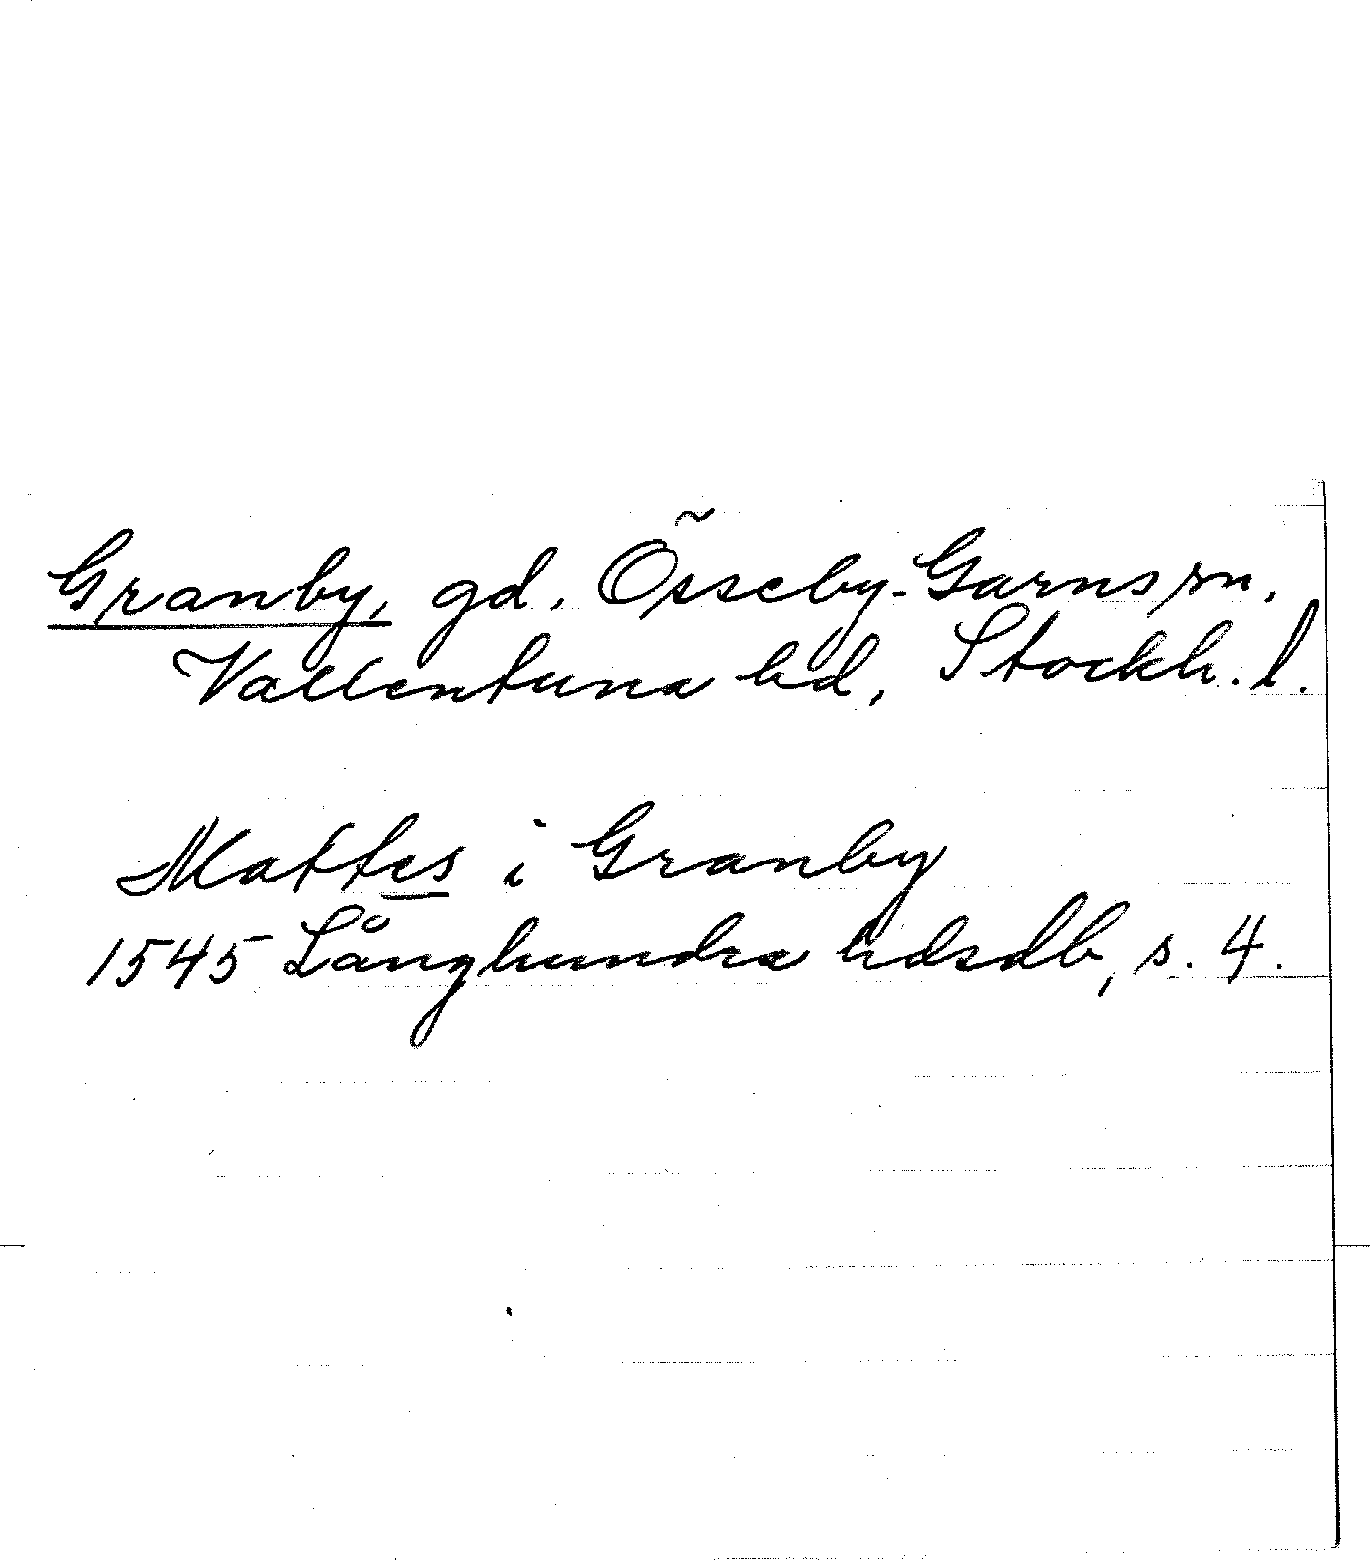 Granby, gd. Össeby-Garns sn.
Vallentuna hd, Stockh. l.
Mattes i Granby
1545 Långhundra hdsdb, s. 4.